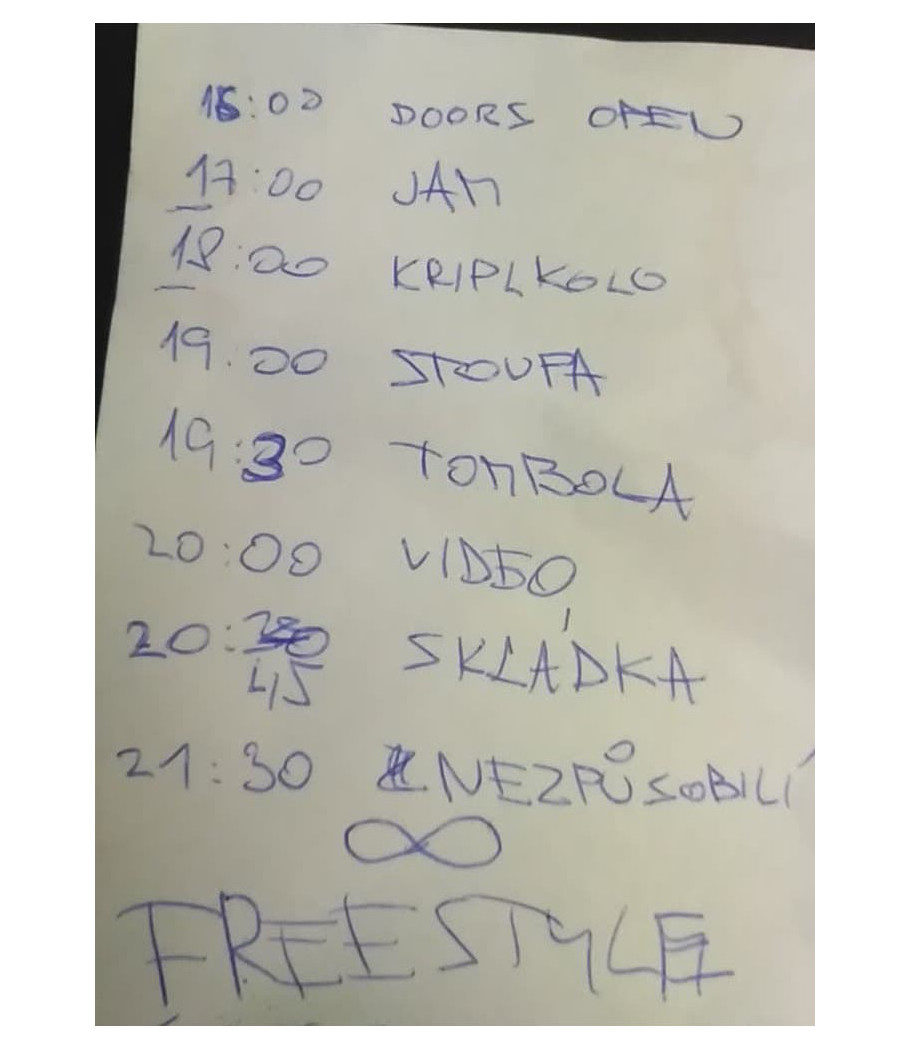 16:00 DOORS OPEN
17:00 JAM
18:00 KRIPLKOLO
19.00 STOUFA
19:30 TOMBOLA
20:00 VIDEO
20:45 SKLÁDKA
21:30 NEZPŮSOBILÍ
∞
FREESTYLE